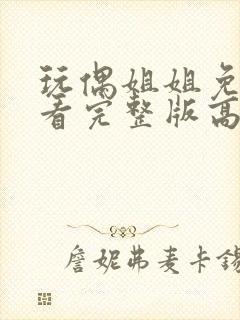 玩偶姐姐免
看完整版高
詹妮弗麦卡锡